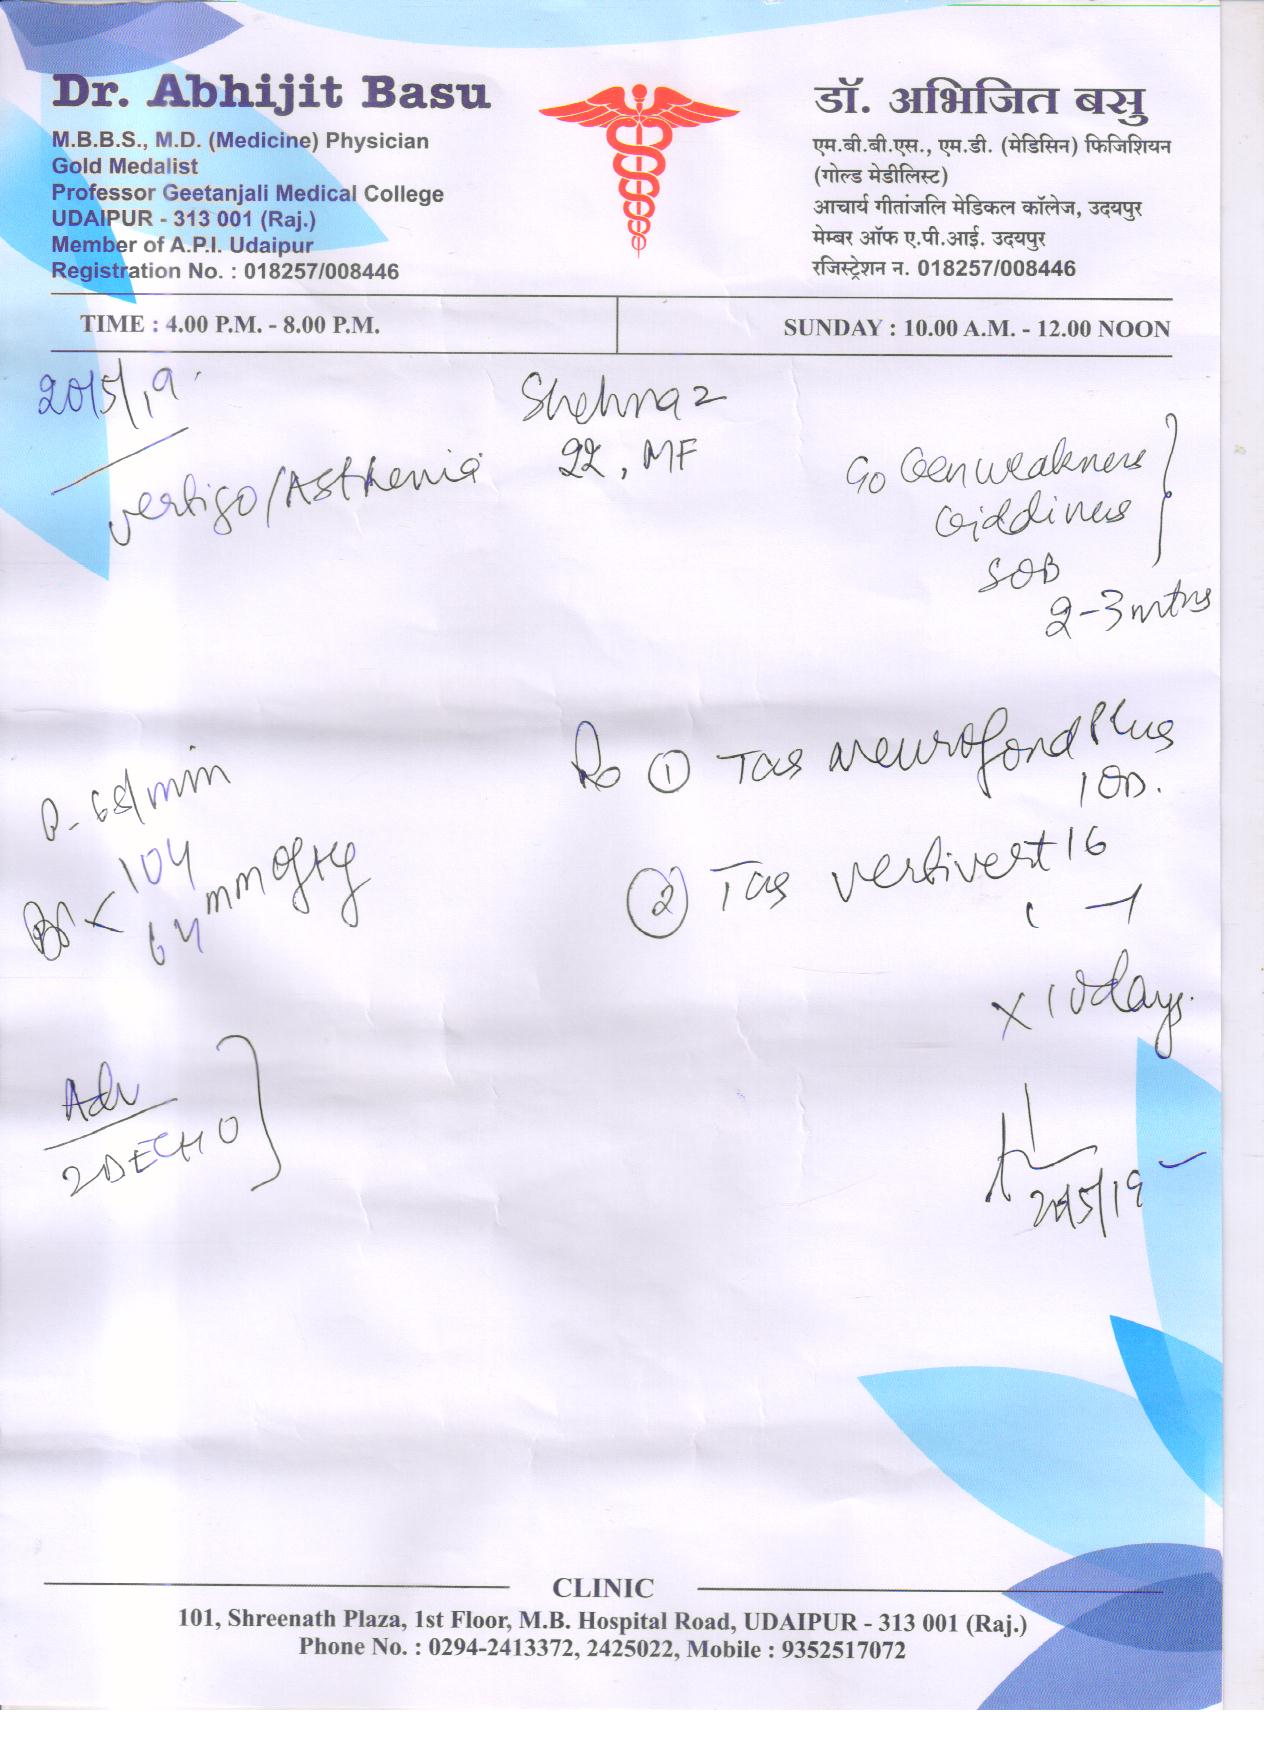 Dr. Abhijit Basu
M.B.B.S., M.D. (Medicine) Physician
Gold Medalist
Professor Geetanjali Medical College
UDAIPUR - 313 001 (Raj.)
Member of A.P.I. Udaipur
Registration No. : 018257/008446
डॉ. अभिजित बसु
एम.बी.बी.एस., एम.डी. (मेडिसिन) फिजिशियन
(गोल्ड मेडीलिस्ट)
आचार्य गीतांजलि मेडिकल कॉलेज, उदयपुर
मेम्बर ऑफ ए.पी.आई. उदयपुर
रजिस्ट्रेशन न. 018257/008446
TIME : 4.00 P.M. - 8.00 P.M.
SUNDAY : 10.00 A.M. - 12.00 NOON
20/5/19
Shehnaz
MF
Vertigo/Asthenia
Gen weakness
Giddiness
SOB
2-3 mths
P- 68/min
104
64 mmofHg
Adv
2DECHO
Rx ① Tab neurofond Plus
1 OD.
② Tab vertivert 16
x 10 days.
20/5/19
CLINIC
101, Shreenath Plaza, 1st Floor, M.B. Hospital Road, UDAIPUR - 313 001 (Raj.)
Phone No. : 0294-2413372, 2425022, Mobile : 9352517072